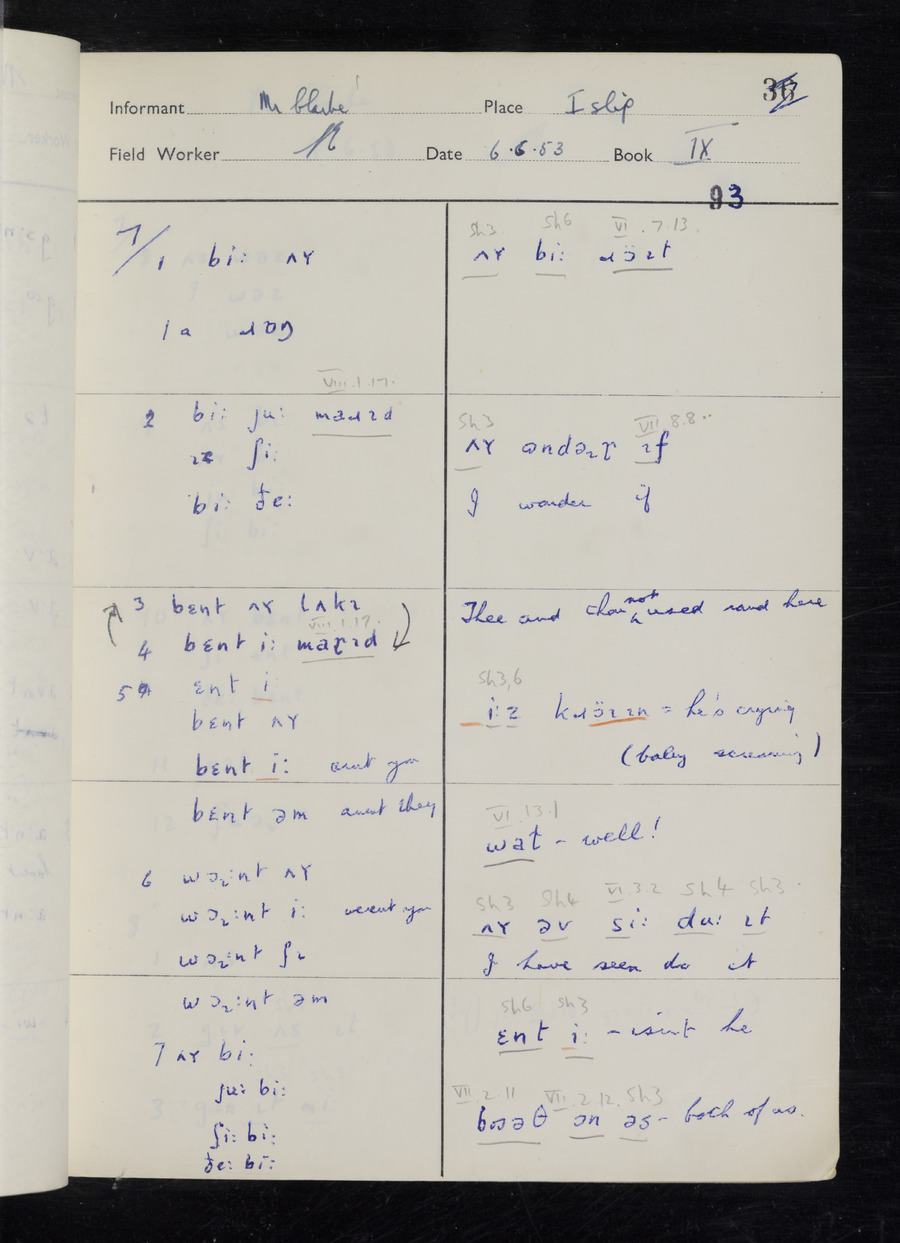 36
Informant Mr Place Islip
Field Worker Date 6.6.53 Book IX
93
7/1 bi: ʌɤ
1a ɹɒŋ
VIII.1.17.
2 bi: ju: maɹɪd
ɪz ʃi:
bi: ðe:
3 bɛnt ʌɤ lʌkɪ
VIII.1.17.
4 bɛnt i: maɹɪd
5 ɛnt i
bɛnt ʌɤ
bɛnt i: arent you
bɛnt əm arent they
6 wɔɻ:nt ʌɤ
wɔɻ:nt i: werent you
wɔɻ:nt ʃɪ
wɔɻ:nt əm
7 ʌɤ bi:
ju: bi:
ʃi: bi:
ðe: bi:
Sh3 Sh6 VI.7.13.
ʌɤ bi: ɹɔ̈ɪt
Sh3 VII.8.8..
ʌɤ ɪf
I wonder if
Thee and thou not used round here
Sh3,6
i:z kɹɔ̈ɪɪn = he's crying
(baby screaming)
VI.13.1
wat - well!
Sh3 Sh4 VI.3.2 Sh4 Sh3.
ʌɤ əv si: du: ɪt
I have seen do it
Sh6 Sh3
ɛnt i: - isn't he
VII.2.11 VII.2.12. Sh3
ən əs - both of us.